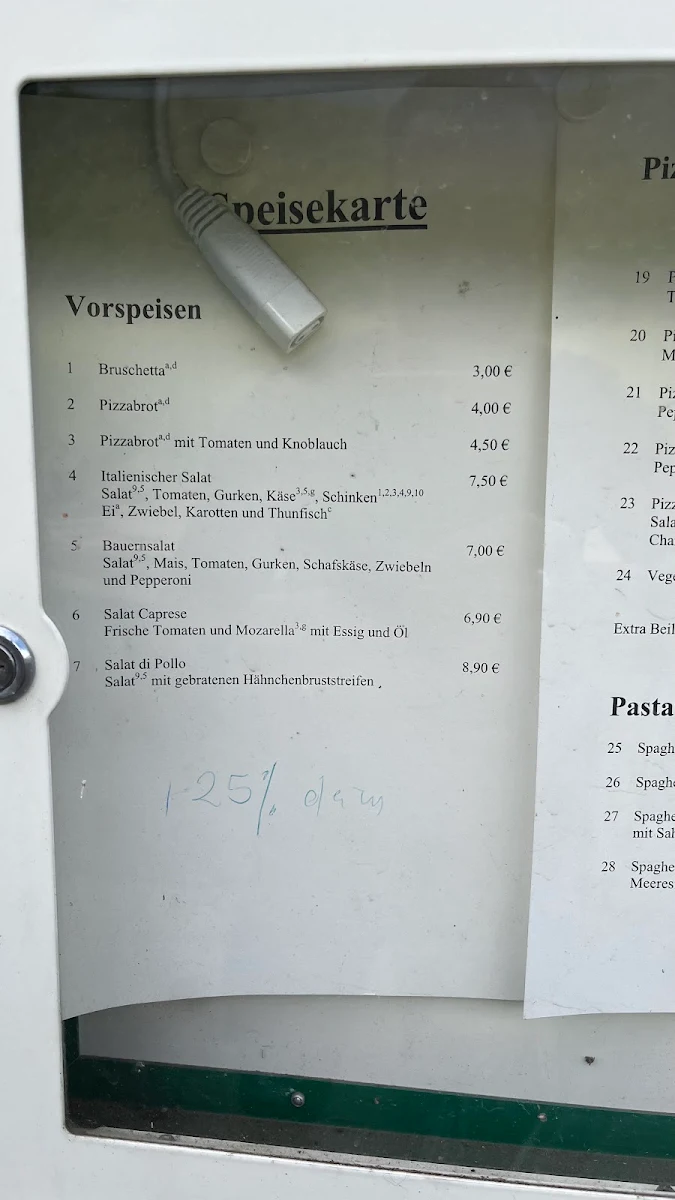 Speisekarte
Vorspeisen
1 Bruschetta^a,d 3,00 €
2 Pizzabrot^a,d 4,00 €
3 Pizzabrot^a,d mit Tomaten und Knoblauch 4,50 €
4 Italienischer Salat 7,50 €
Salat^9,5, Tomaten, Gurken, Käse^3,5,g, Schinken^1,2,3,4,9,10
Ei^a, Zwiebel, Karotten und Thunfisch^c
5 Bauernsalat 7,00 €
Salat^9,5, Mais, Tomaten, Gurken, Schafskäse, Zwiebeln
und Pepperoni
6 Salat Caprese 6,90 €
Frische Tomaten und Mozarella^3,g mit Essig und Öl
7 Salat di Pollo 8,90 €
Salat^9,5 mit gebratenen Hähnchenbruststreifen
25%
19
20
21
22
23
24
Extra
Pasta
25
26
27
mit
28